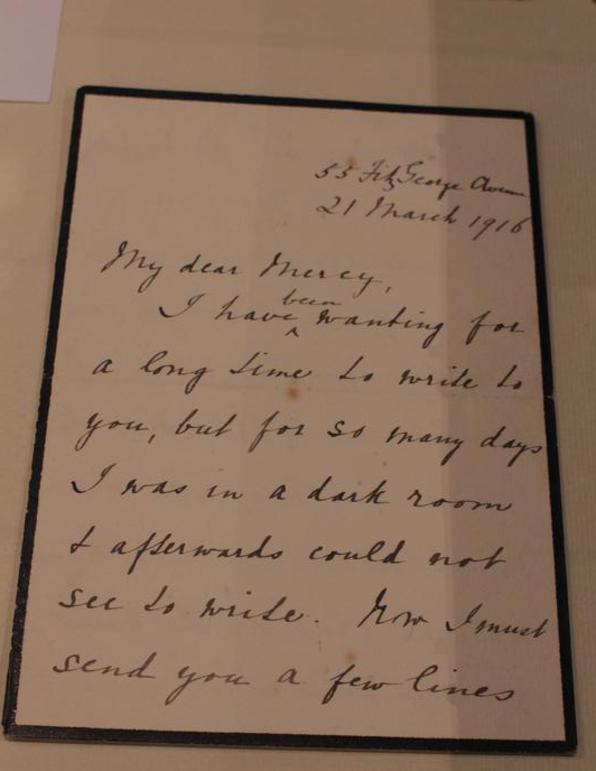 55 FitzGeorge Avenue
21 March 1916
My dear Mercy,
been
I have ^ wanting for
a long time to write to
you, but for so many days
I was in a dark room
& afterwards could not
see to write. Now I must
send you a few lines